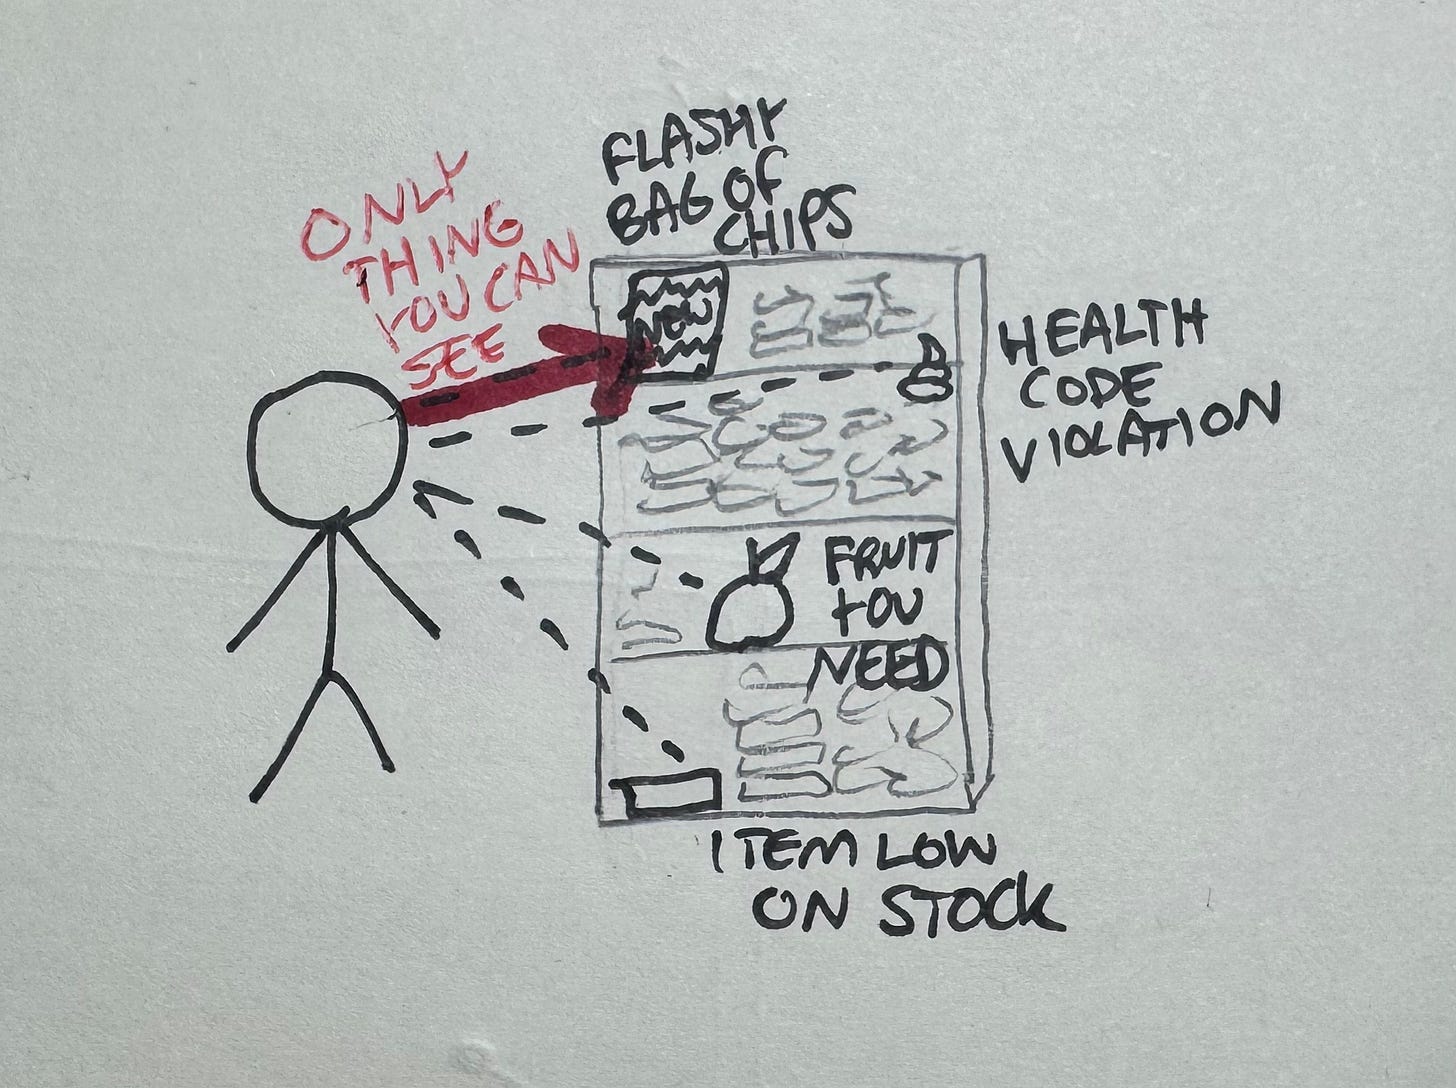 FLASHY
BAG OF
CHIPS
ONLY
THING
YOU CAN
SEE
NEW
HEALTH
CODE
VIOLATION
FRUIT
YOU
NEED
ITEM LOW
ON STOCK